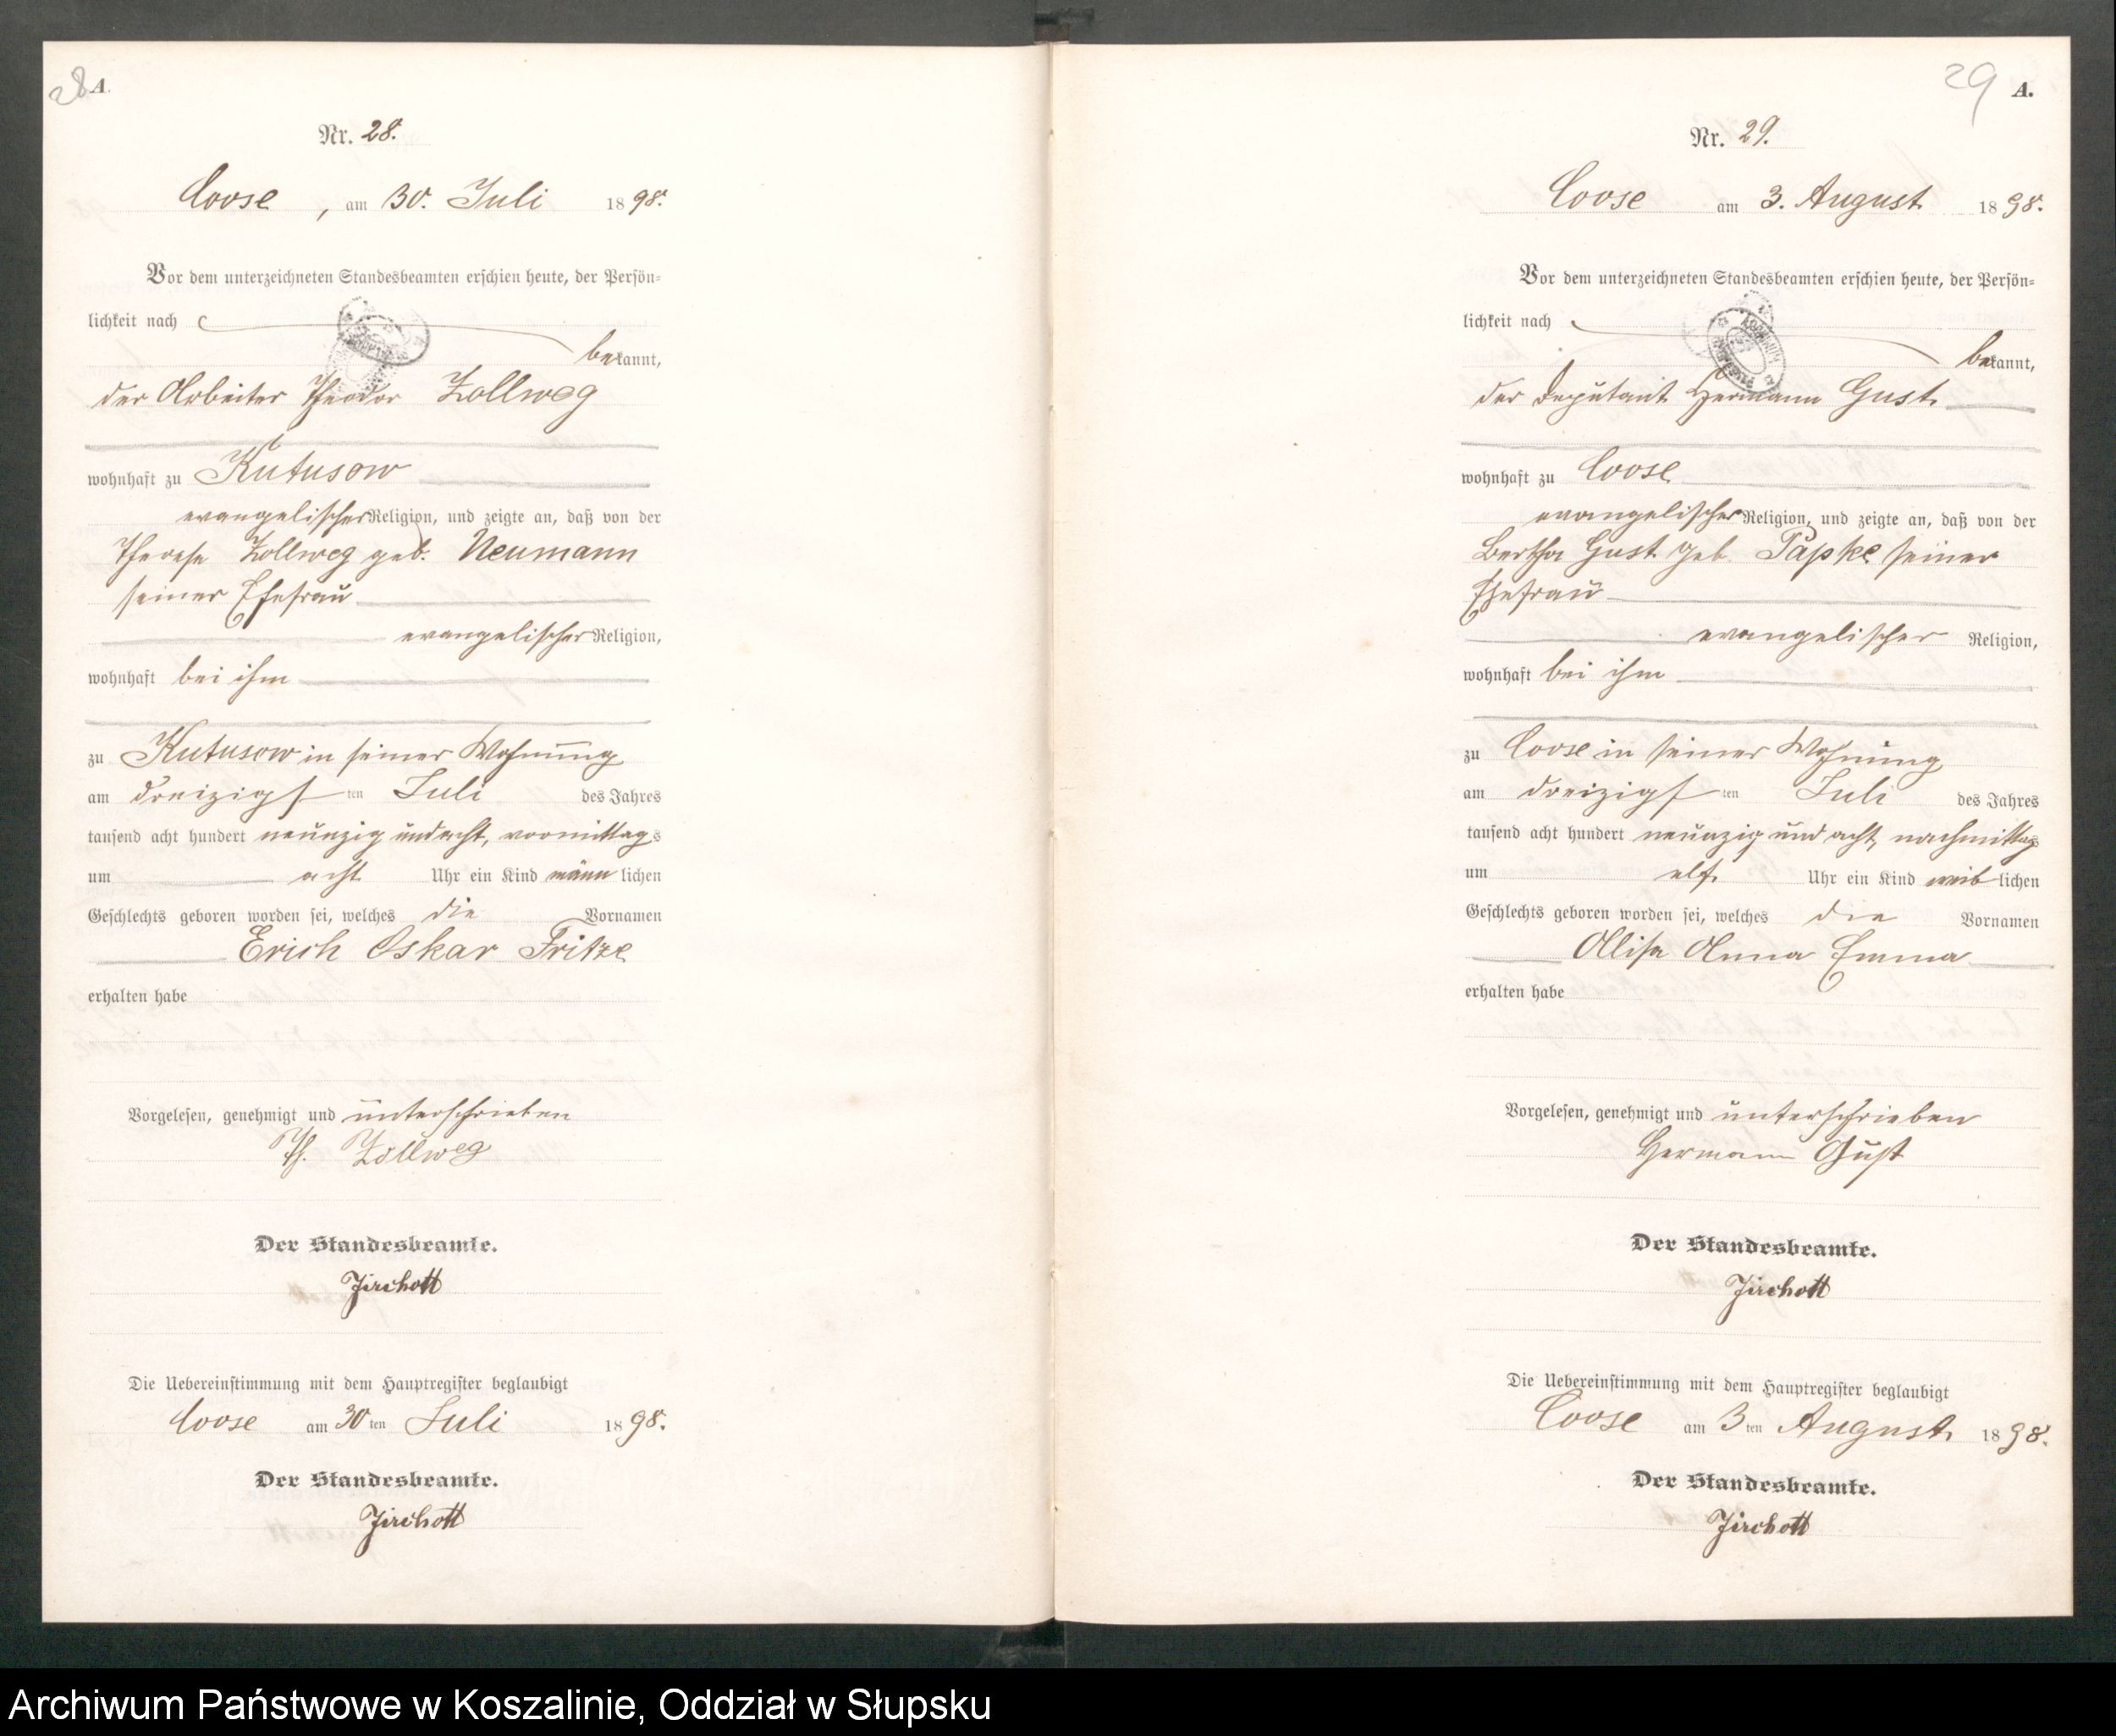 28 A.
Nr. 28.
Coose, am 30. Juli 1898.
Vor dem unterzeichneten Standesbeamten erschien heute, der Persön-
lichkeit nach
bekannt,
der Arbeiter Theodor Zollweg
wohnhaft zu Kutusow
evangelischer Religion, und zeigte an, daß von der
Therese Zollweg geb. Neumann
seiner Ehefrau
evangelischer Religion,
wohnhaft bei ihm
zu Kutusow in seiner Wohnung
am dreizigsten Juli des Jahres
tausend acht hundert neunzig und acht, vormittags
um acht Uhr ein Kind männlichen
Geschlechts geboren worden sei, welches die Vornamen
Erich Oskar Fritze
erhalten habe
Vorgelesen, genehmigt und unterschrieben
Th. Zollweg
Der Standesbeamte.
Jirchott
Die Uebereinstimmung mit dem Hauptregister beglaubigt
Coose am 30ten Juli 1898.
Der Standesbeamte.
Jirchott
29 A.
Nr. 29.
Coose am 3. August 1898.
Vor dem unterzeichneten Standesbeamten erschien heute, der Persön-
lichkeit nach
bekannt,
der Deputant Hermann Gust
wohnhaft zu Coose
evangelischer Religion, und zeigte an, daß von der
Bertha Gust geb. Papke seiner
Ehefrau
evangelischer Religion,
wohnhaft bei ihm
zu Coose in seiner Wohnung
am dreizigsten Juli des Jahres
tausend acht hundert neunzig und acht, nachmittags
um elf Uhr ein Kind weiblichen
Geschlechts geboren worden sei, welches die Vornamen
Alise Anna Emma
erhalten habe
Vorgelesen, genehmigt und unterschrieben
Hermann Gust
Der Standesbeamte.
Jirchott
Die Uebereinstimmung mit dem Hauptregister beglaubigt
Coose am 3ten August 1898.
Der Standesbeamte.
Jirchott
Archiwum Państwowe w Koszalinie, Oddział w Słupsku